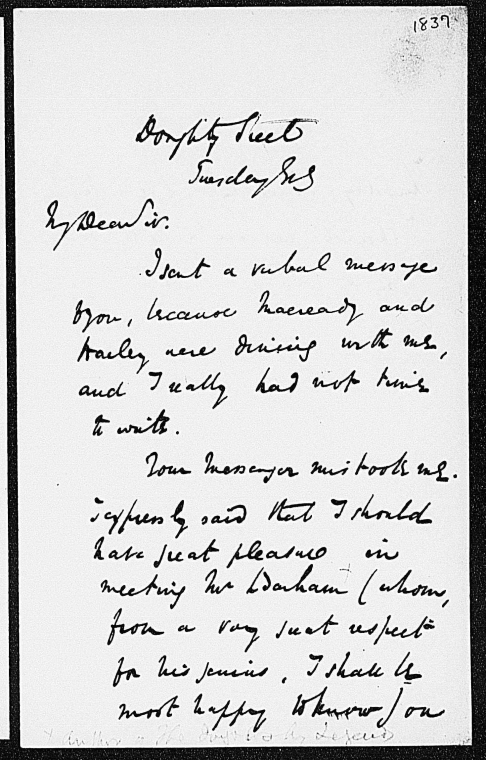 1837
Doughty Street
Tuesday Evg
My Dear Sir.
I sent a verbal message
to you, because Macready and
Harley were dining with me,
and I really had not time
to write.
Your messenger mistook me.
I expressly said that I should
have great pleasure in
meeting Mr Barham (whom,
from a very great respect
for his genius, I shall be
most happy to know) on
Author The Ingoldsby Legend